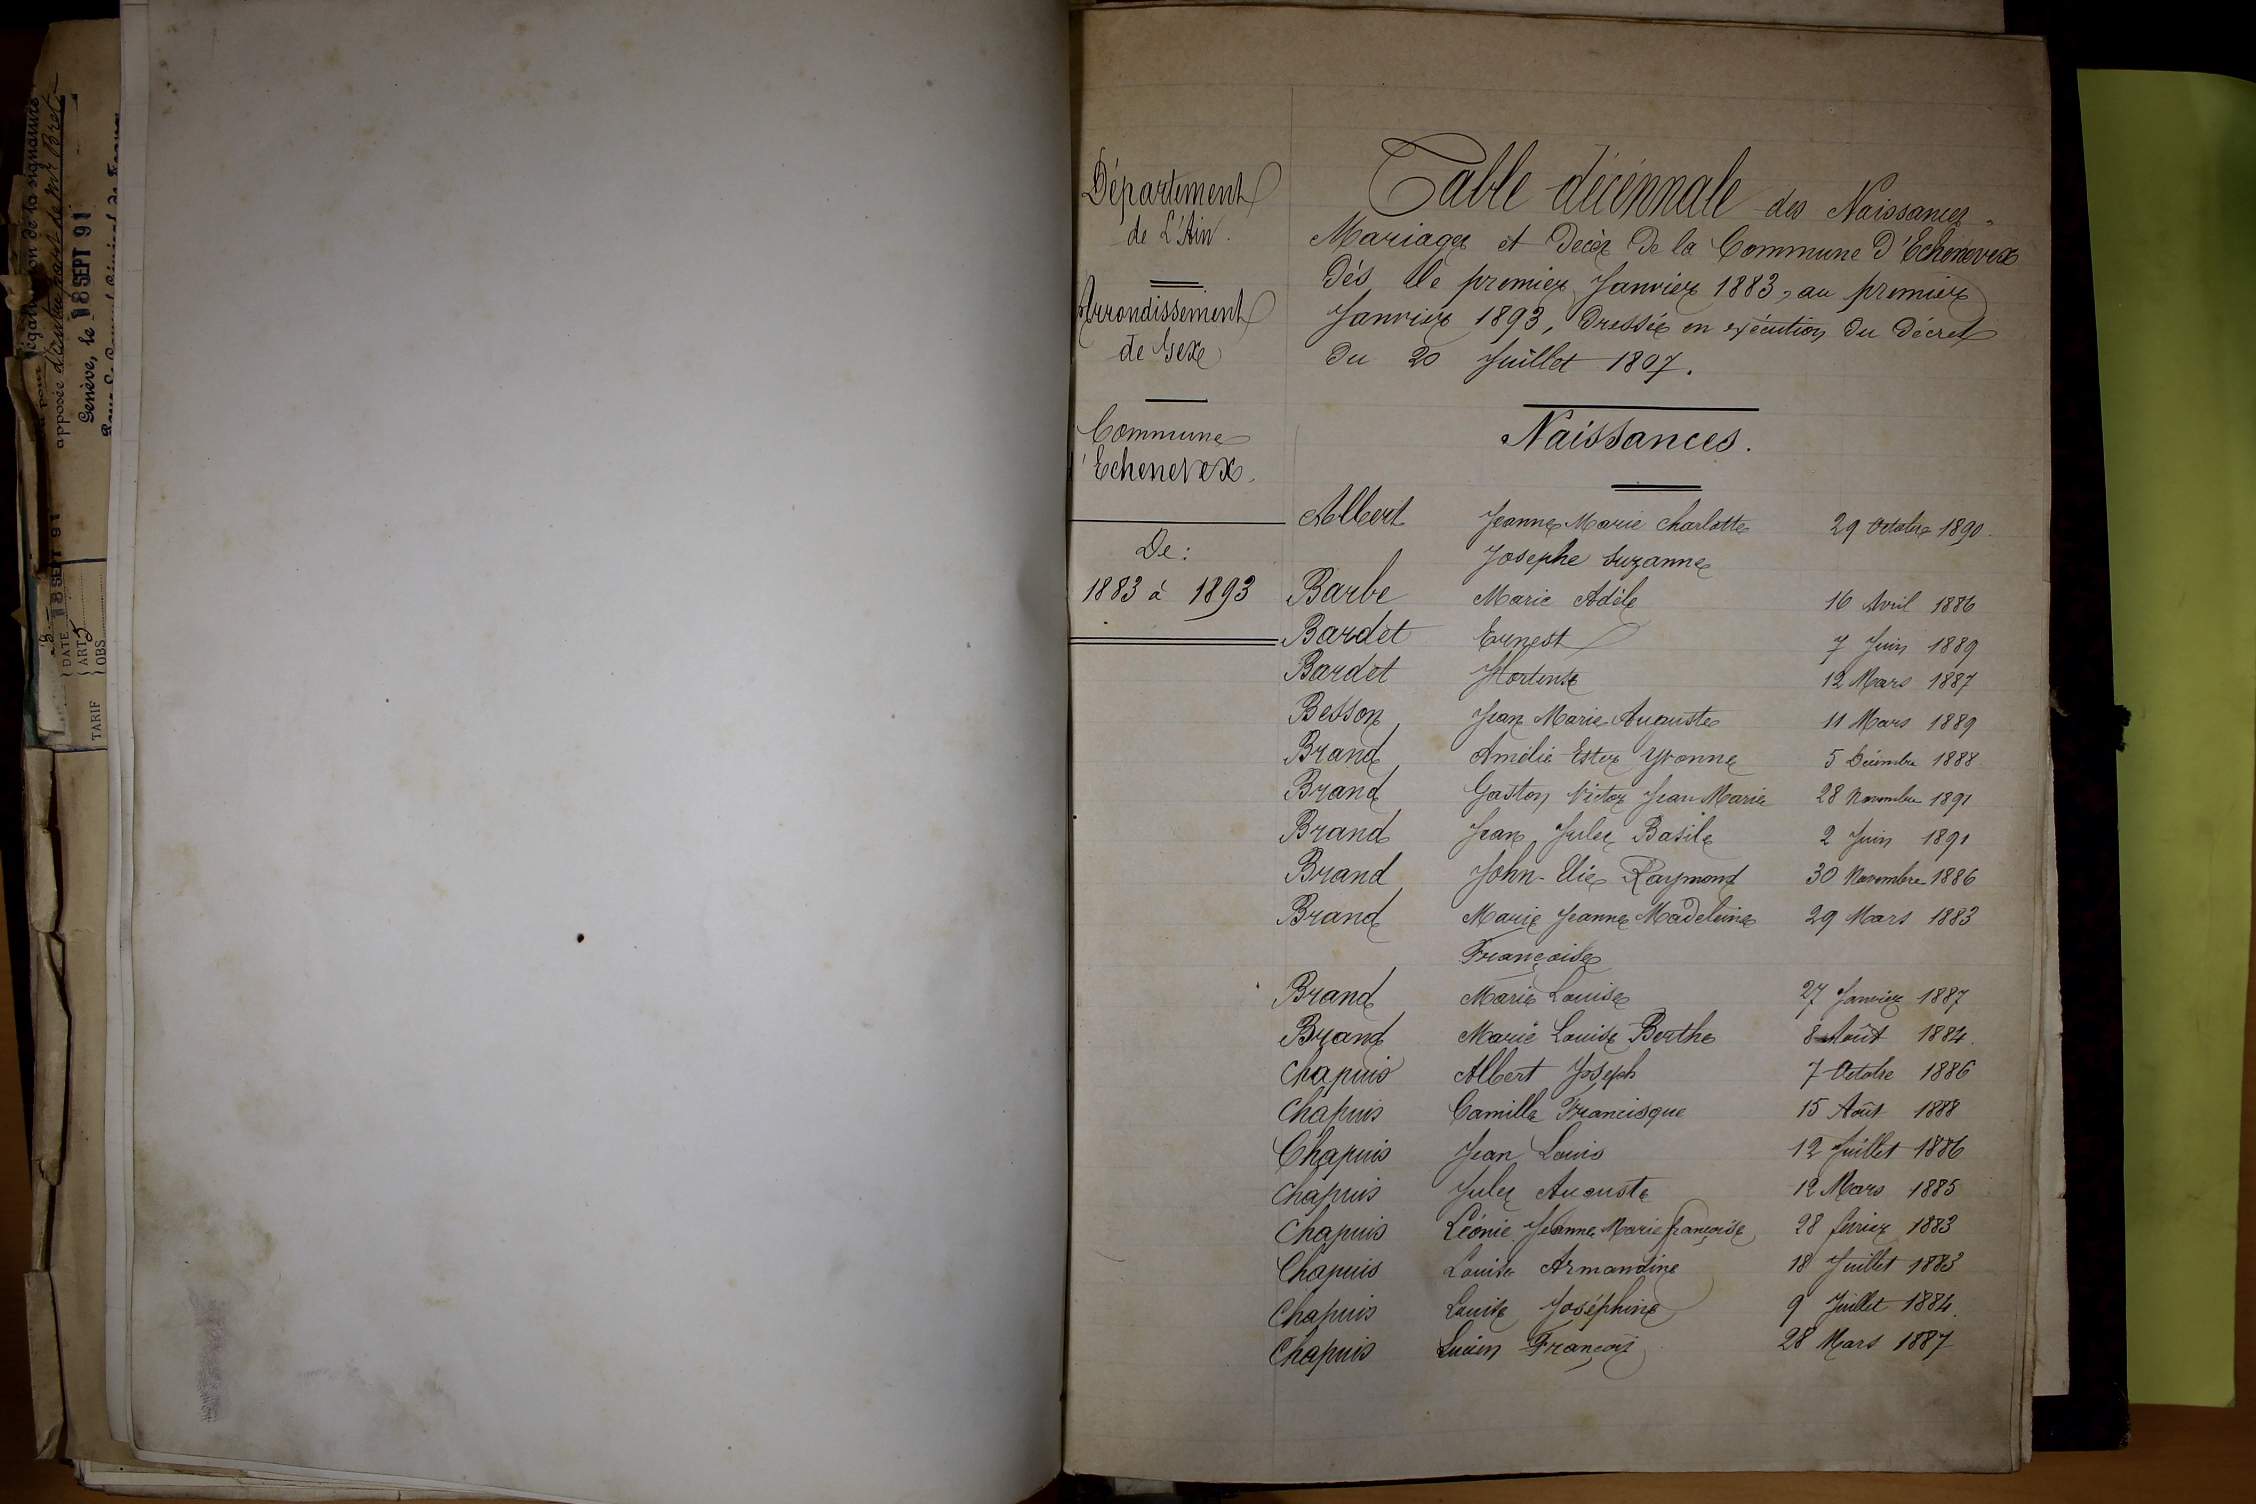 légalisation de la signature
apposée d'autre part de Mr Bret
Genève, le 18 SEPT 91
18 SEPT 91
DATE
ART 5
OBS
TARIF
Département
de L'Ain.
Arrondissement
de Gex
Commune
d'Echenevex.
De:
1883 à 1893
Table décennale des Naissances
Mariages et Décès de la Commune d'Echenevex
dès le premier Janvier 1883, au premier
Janvier 1893, dressée en exécution du Décret
du 20 Juillet 1807.
Naissances.
Albert Jeanne Marie Charlotte 29 Octobre 1890.
Josephe Suzanne
Barbe Marie Adèle 16 Avril 1886
Bardet Ernest 7 Juin 1889
Bardet Hortense 12 Mars 1887
Besson Jean Marie Auguste 11 Mars 1889
Brand Amélie Ester Yvonne 5 Décembre 1888
Brand Gaston Victor Jean Marie 28 Novembre 1891
Brand Jean Jules Basile 2 Juin 1891
Brand John-Elie Raymond 30 Novembre 1886
Brand Marie Jeanne Madeleine 29 Mars 1883
Françoise
Brand Marie Louise 27 Janvier 1887
Brand Marie Louise Berthe 8 Août 1884.
Chapuis Albert Joseph 7 Octobre 1886
Chapuis Camille Francisque 15 Août 1888
Chapuis Jean Louis 12 Juillet 1886
Chapuis Jules Auguste 12 Mars 1885
Chapuis Léonie Jeanne Marie Françoise 28 février 1883
Chapuis Louise Armandine 18 Juillet 1883
Chapuis Louise Joséphine 9 Juillet 1884.
Chapuis Lucien François 28 Mars 1887